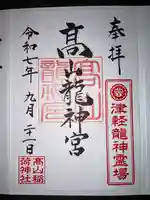 奉拝
津軽龍神霊場
高山龍神宮
令和七年 九月二十一日
高山稲荷神社